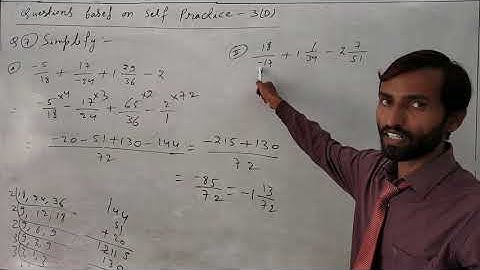 Questions based on Self Practice - 3(D)
Q ⑦ Simplify:-
ⓐ -5/18 + 17/-24 + 1 29/36 - 2
= -5/18 ×4 - 17/24 ×3 + 65/36 ×2 - 2/1 ×72
= -20-51+130-144/72 = -215+130/72
= -85/72 = -1 13/72
ⓑ 18/-17 + 1 1/34 - 2 7/51
2|18, 24, 36
2|9, 12, 18
2|9, 6, 9
144
51
+20
215